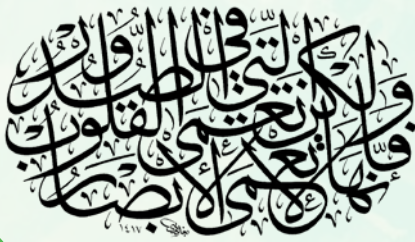 فإنها لا تعمى الأبصار
ولكن تعمى القلوب
التي في الصدور
١٤١٧